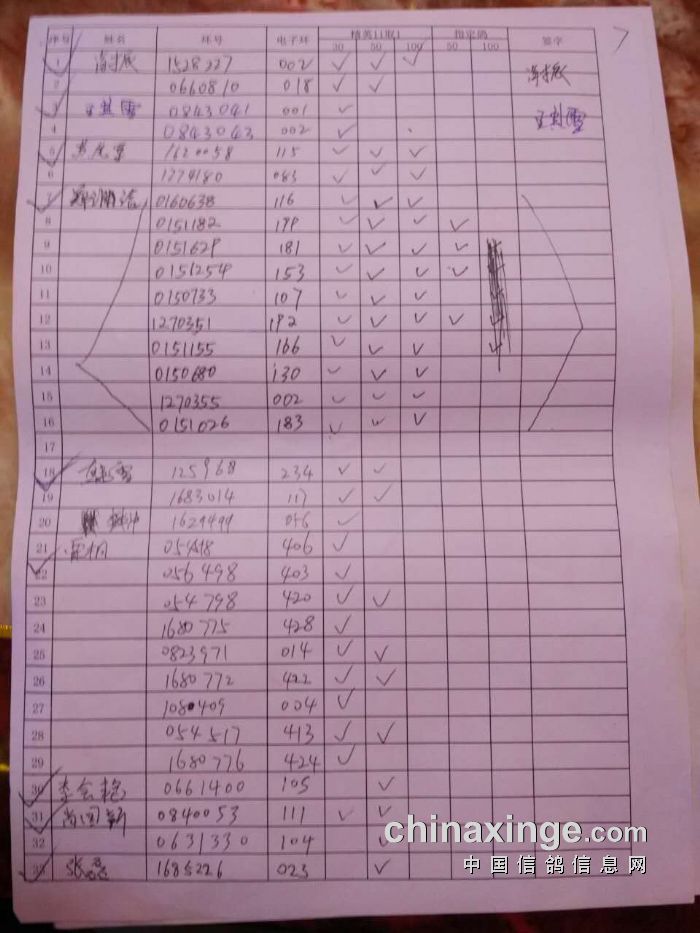 序号 姓名 环号 电子环 精英11取1 指定鸽 签字
30 50 100 50 100
7
1 1528227 002 ✓ ✓ ✓
2 0660810 018 ✓ ✓
3 王赵雪 0843041 001 ✓ 王赵雪
4 0843043 002 ✓
5 1620058 115 ✓ ✓ ✓
6 1274180 083 ✓ ✓ ✓
7 0160638 116 ✓ ✓ ✓
8 0151182 199 ✓ ✓ ✓ ✓
9 0151629 181 ✓ ✓ ✓ ✓
10 0151254 153 ✓ ✓ ✓ ✓
11 0150733 107 ✓ ✓ ✓
12 1270351 192 ✓ ✓ ✓ ✓
13 0151155 166 ✓ ✓ ✓
14 0150680 130 ✓ ✓ ✓
15 1270355 002 ✓ ✓ ✓
16 0151026 183 ✓ ✓ ✓
17
18 125968 234 ✓ ✓
19 1683014 117 ✓ ✓
20 1629499 056 ✓
21 雷桐 406 ✓
22 056498 403 ✓
23 054798 420 ✓ ✓
24 1680775 428 ✓
25 0823971 014 ✓ ✓
26 1680772 422 ✓ ✓
27 1080409 004 ✓
28 054517 413 ✓ ✓
29 1680776 424 ✓
30 李会艳 0661400 105 ✓
31 尚国新 0840053 111 ✓ ✓
32 0631330 104 ✓
33 张磊 1685226 023 ✓
chinaxinge.com
中国信鸽信息网